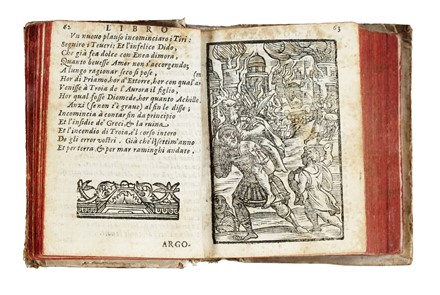 62 LIBRO
Da nuouo plauso incominciaro i Tirî:
Seguiro i Teucri; Et l'infelice Dido,
Che già sea dolce con Enea dimora,
Quanto beuesse Amor non s'accorgendo;
A lungo ragionar seco si pose,
Hor di Priamo, hor d'Ettorre, hor con qual'ar
Venisse à Troia de l'Aurora il figlio,
Hor qual fosse Diomede, hor quanto Achille.
Anzi (se non t'è graue) al fin le disse;
Incomincia à contar fin da principio
Et l'insidie de' Greci, & la ruina
Et l'incendio di Troia, e'l corso intero
De gli error vostri. Già che'l settim'anno
Et per terra & per mar raminghi andate.
ARGO-
63